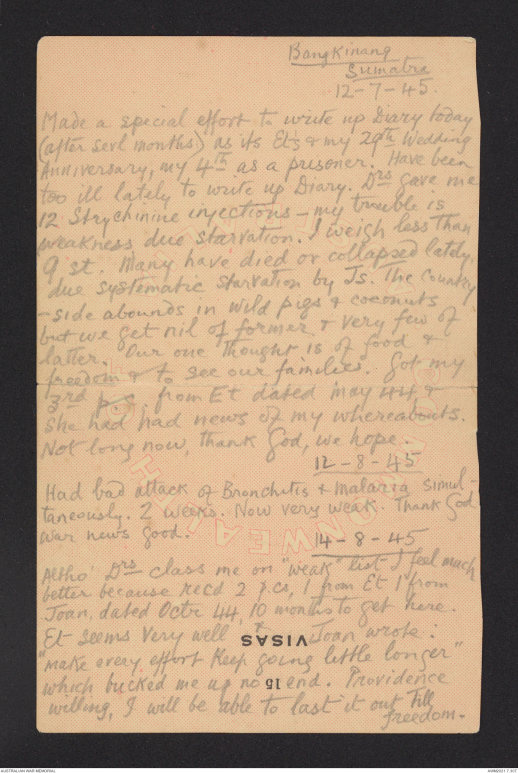 Bangkinang
Sumatra
12-7-45.
Made a special effort to write up Diary today
(after sevl months) as its Et's & my 29th Wedding
Anniversary, my 4th as a prisoner. Have been
too ill lately to write up Diary. Drs gave me
12 Strychinine injections - my trouble is
weakness due starvation. I weigh less than
9 st. Many have died or collapsed lately.
due systematic starvation by Js. The Country
-side abounds in wild pigs & coconuts
but we get nil of former & very few of
latter. Our one thought is of food &
freedom & to see our families. Got my
3rd p.c. from Et dated may 44 &
she had had news of my whereabouts.
Not long now, thank God, we hope
12-8-45
Had bad attack of Bronchitis & malaria simul-
taneously. 2 weeks. Now very weak Thank God
war news good.
14-8-45
Altho' Drs class me on "weak" list I feel much
better because recd 2 p.cs, 1 from Et 1 from
Joan, dated Octr 44, 10 months to get here.
Et seems very well & Joan wrote:
VISAS
"make every effort keep going little longer"
which bucked me up no end. Providence
15
willing, I will be able to last it out till
freedom.
COMMONWEALTH
AUSTRALIAN WAR MEMORIAL